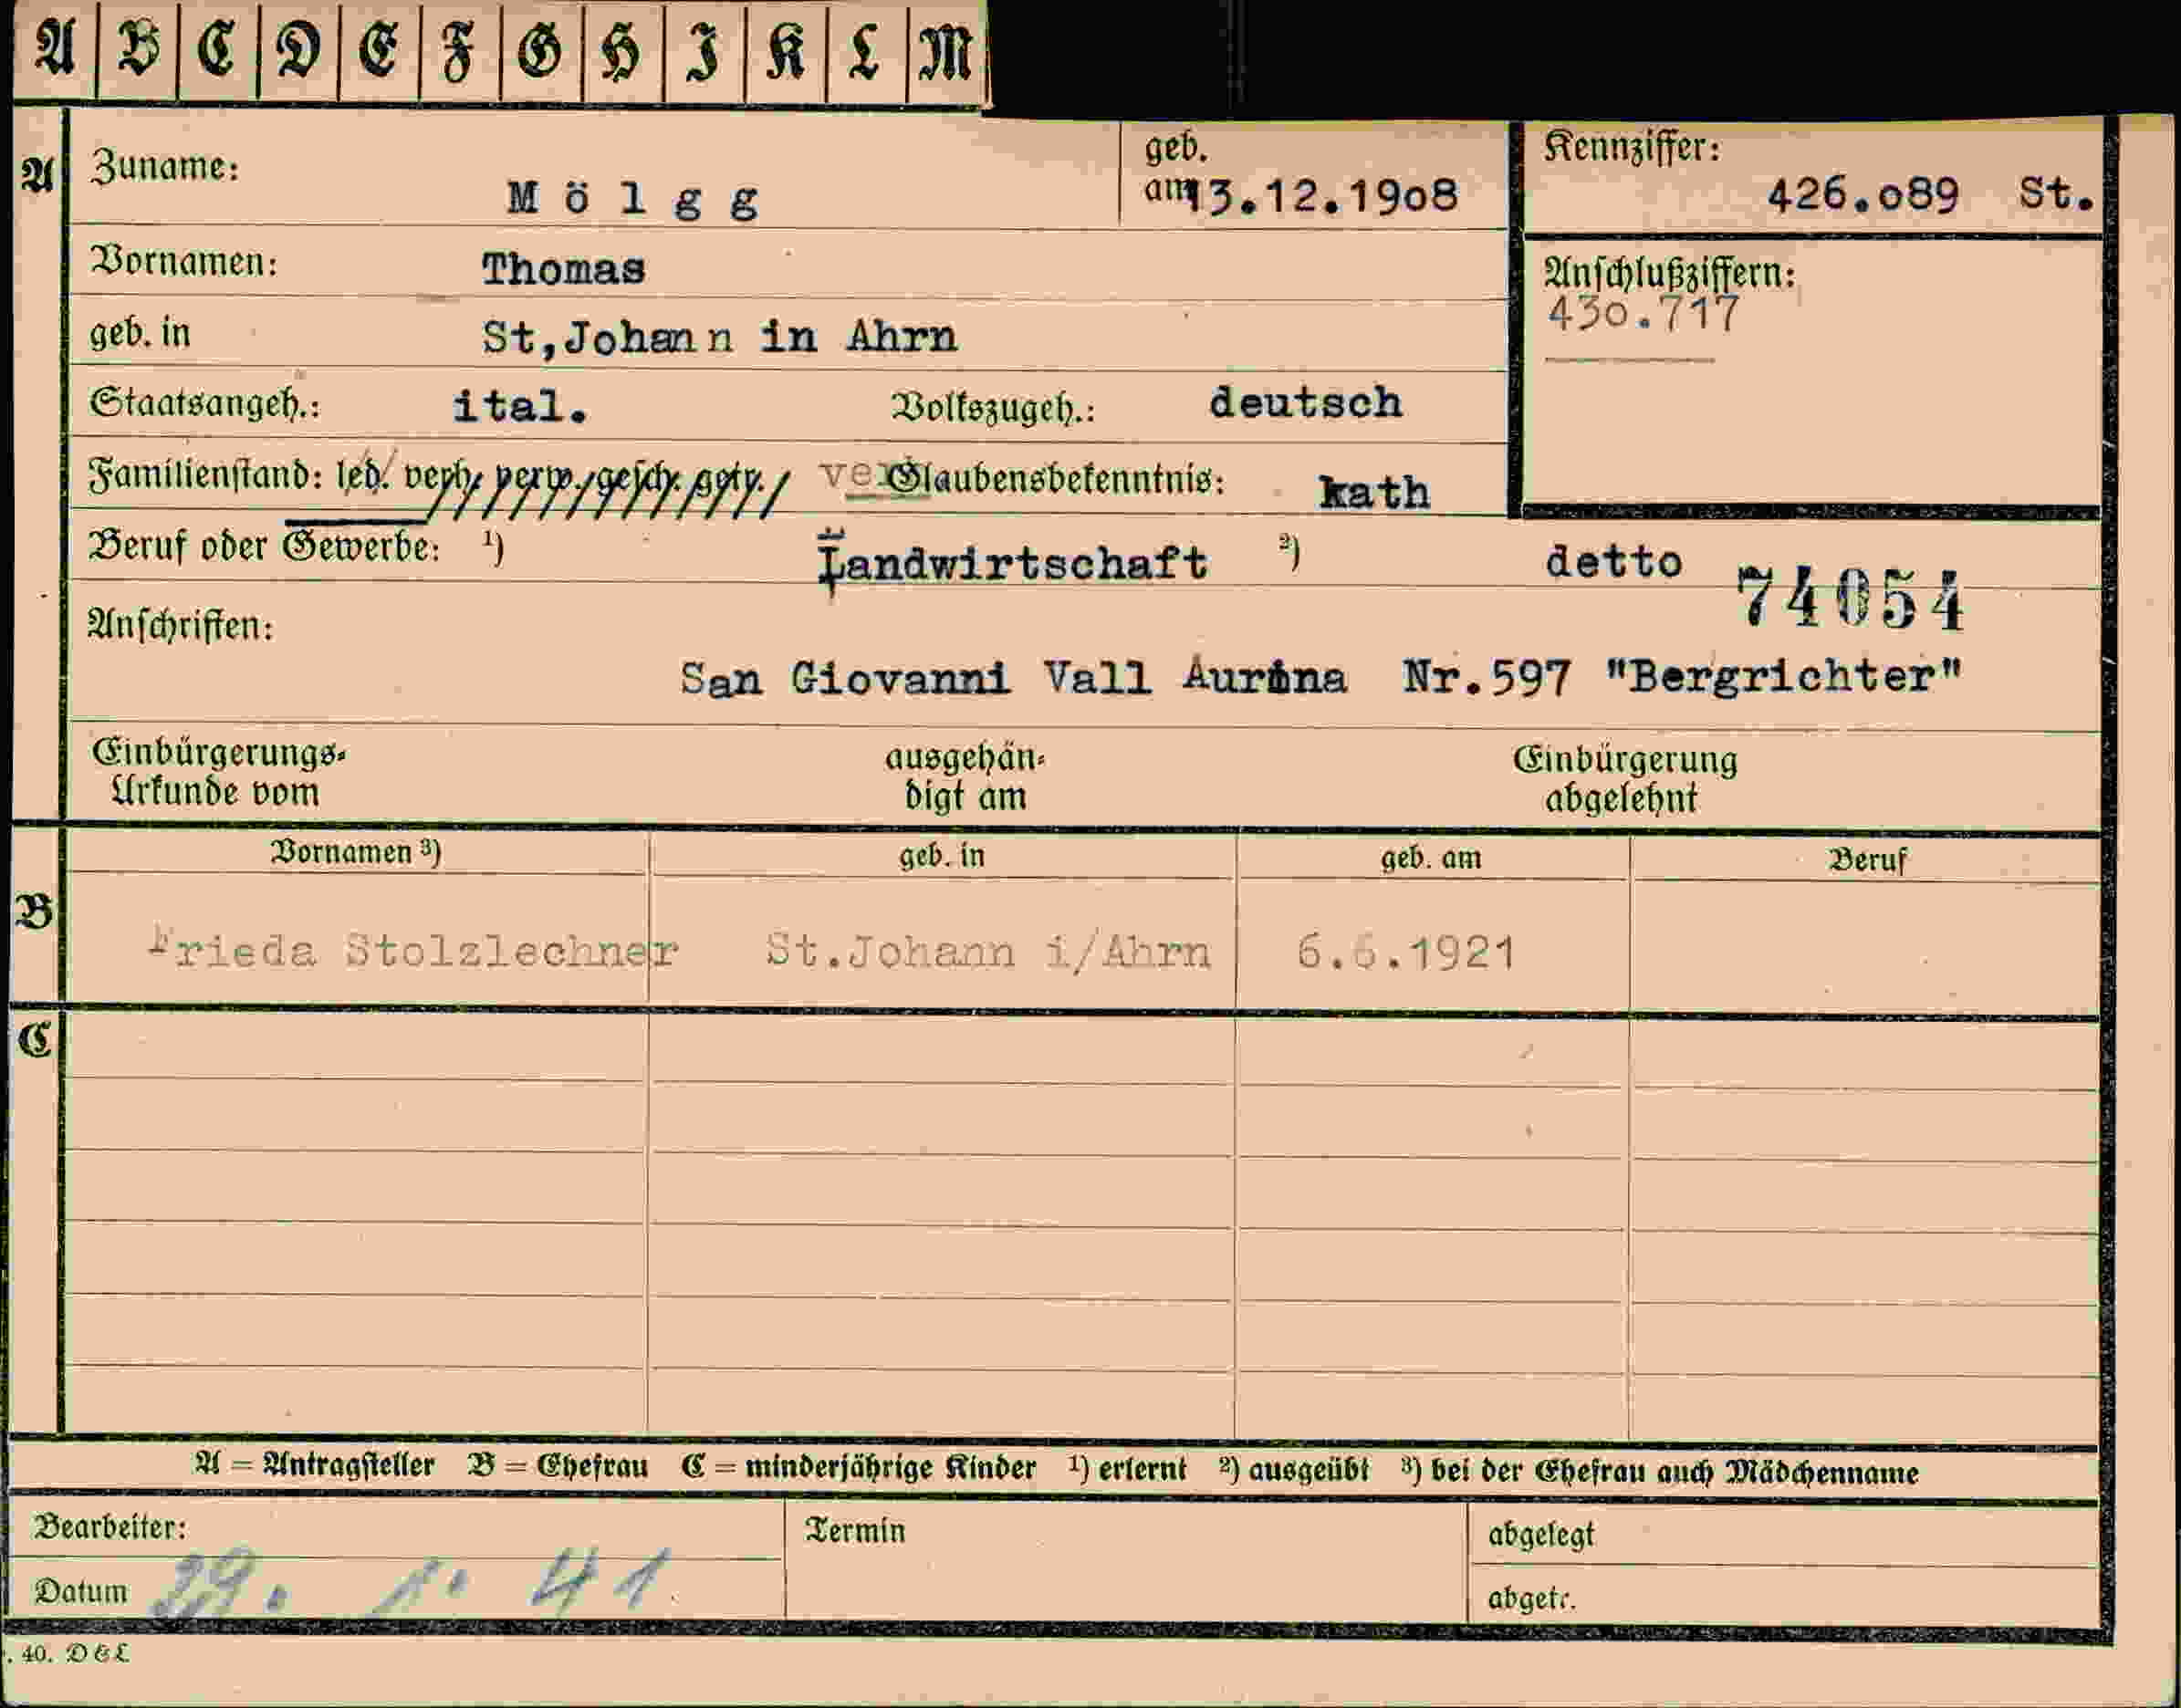 A B C D E F G H I K L M
A Zuname: Mölgg geb. am 13.12.1908 Kennziffer: 426.o89 St.
Vornamen: Thomas
Anschlußziffern:
430.717
geb. in St,Johann in Ahrn
Staatsangeh.: ital. Volkszugeh.: deutsch
Familienstand: led. verh. verw. gesch. getr. Glaubensbekenntnis: kath
Beruf oder Gewerbe: 1) Landwirtschaft 2) detto
74054
Anschriften:
San Giovanni Vall Aurina Nr.597 "Bergrichter"
Einbürgerungs- ausgehän- Einbürgerung
Urkunde vom digt am abgelehnt
Vornamen 3) geb. in geb. am Beruf
B Frieda Stolzlechner St.Johann i/Ahrn 6.6.1921
C
A = Antragsteller B = Ehefrau C = minderjährige Kinder 1) erlernt 2) ausgeübt 3) bei der Ehefrau auch Mädchenname
Bearbeiter: Termin abgelegt
Datum 29. 1. 41 abgetr.
. 40. D & L